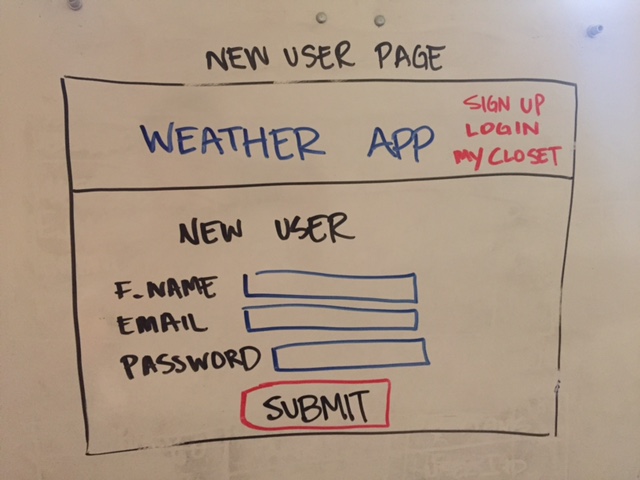 NEW USER PAGE
WEATHER APP
SIGN UP
LOGIN
MY CLOSET
NEW USER
F_NAME
EMAIL
PASSWORD
SUBMIT